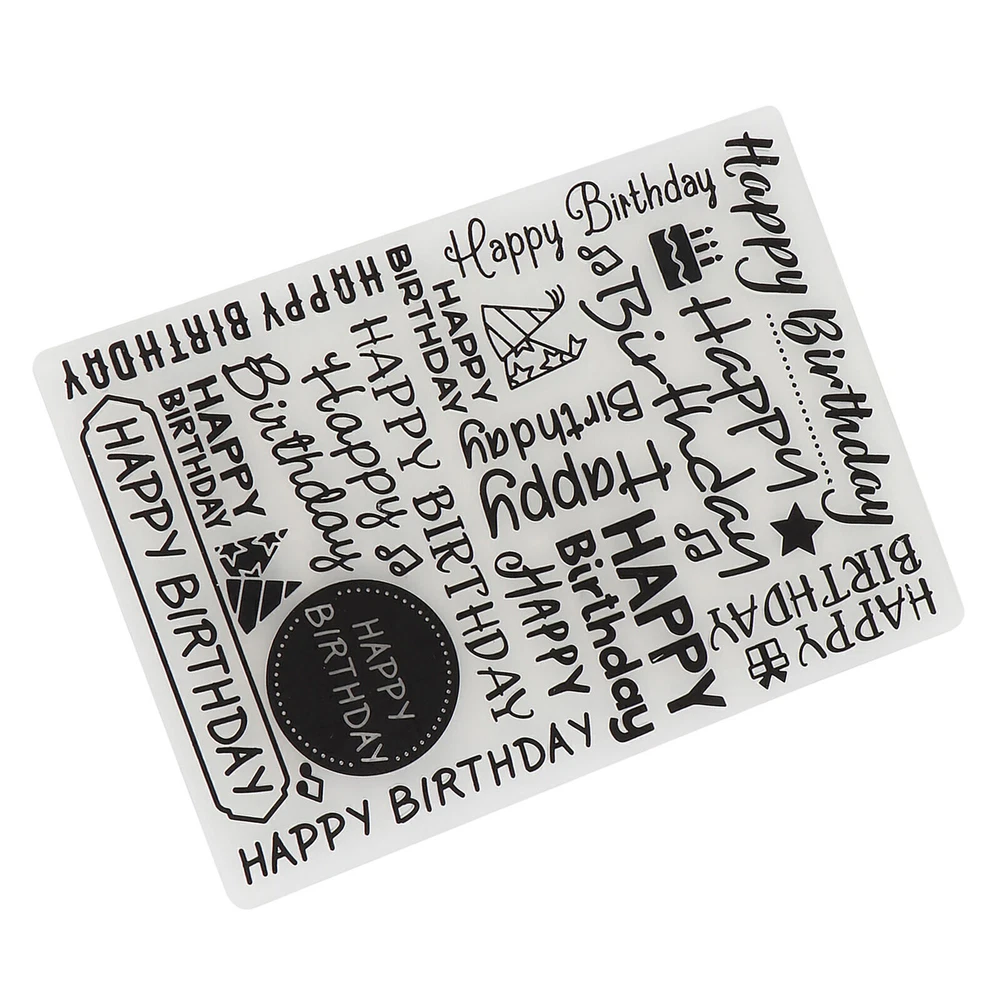 Happy Birthday
Happy Birthday
HAPPY BIRTHDAY
HAPPY
BIRTHDAY
HAPPY
BIRTHDAY
Happy
Birthday
HAPPY BIRTHDAY
Happy
Birthday
Happy
Birthday
HAPPY BIRTHDAY
HAPPY
BIRTHDAY
HAPPY
Birthday
HAPPY
HAPPY
BIRTHDAY
HAPPY BIRTHDAY